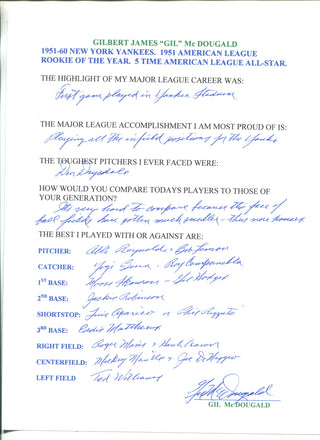 GILBERT JAMES "GIL" Mc DOUGALD
1951-60 NEW YORK YANKEES. 1951 AMERICAN LEAGUE
ROOKIE OF THE YEAR. 5 TIME AMERICAN LEAGUE ALL-STAR.
THE HIGHLIGHT OF MY MAJOR LEAGUE CAREER WAS:
First game played in Yankee Stadium
THE MAJOR LEAGUE ACCOMPLISHMENT I AM MOST PROUD OF IS:
Playing all the infield positions for the Yanks
THE TOUGHEST PITCHERS I EVER FACED WERE:
Don Drysdale
HOW WOULD YOU COMPARE TODAYS PLAYERS TO THOSE OF
YOUR GENERATION?
It's very hard to compare because the size of
ball fields have gotten much smaller - thus more homers
THE BEST I PLAYED WITH OR AGAINST ARE:
PITCHER: Allie Reynolds & Bob Lemon
CATCHER: Yogi Berra - Roy Campanella
1ST BASE: Moose Skowron - Gil Hodges
2ND BASE: Jackie Robinson
SHORTSTOP: Luis Aparicio or Phil Rizzuto
3RD BASE: Eddie Mathews
RIGHT FIELD: Roger Maris & Hank Aaron
CENTERFIELD: Mickey Mantle & Joe DiMaggio
LEFT FIELD Ted Williams
Gil McDougald
GIL McDOUGALD